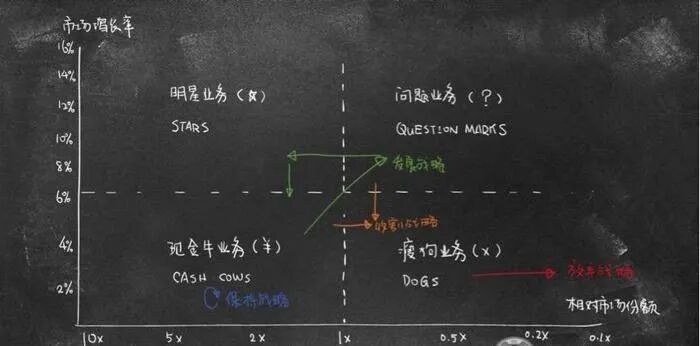 市场增长率
16%
14%
明星业务(☆)
问题业务(?)
12%
STARS
QUESTION MARKS
10%
8%
发展战略
6%
收割战略
4%
现金牛业务(¥)
瘦狗业务(×)
CASH COWS
DOGS
放弃战略
2%
保持战略
相对市场份额
10x
5x
2x
1x
0.5x
0.2x
0.1x